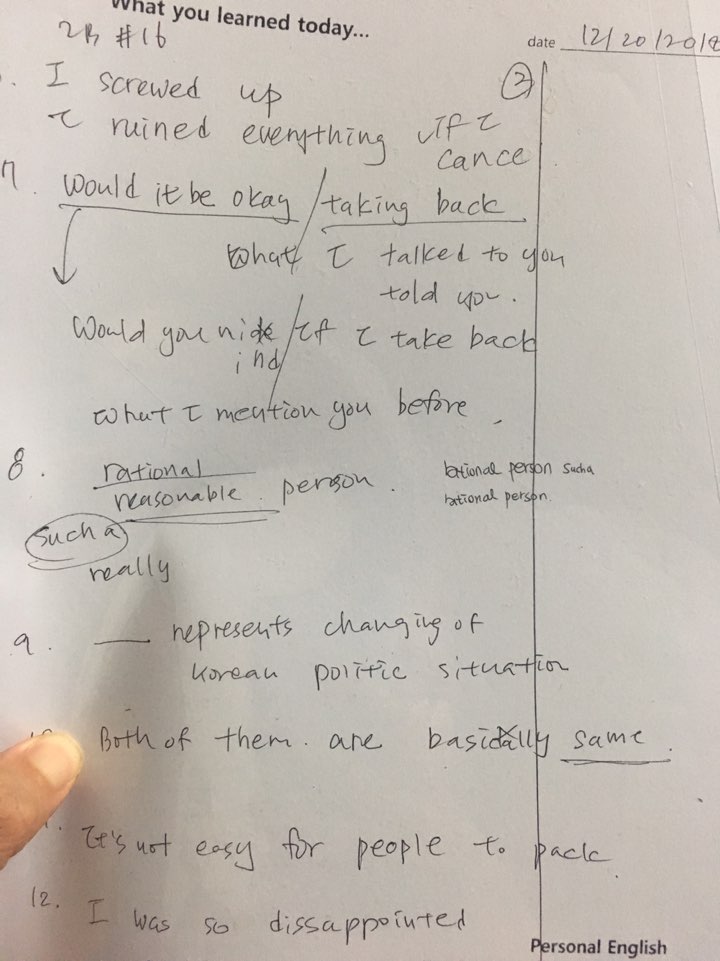 What you learned today...
2B #16
date 12/20/2018
②
. I screwed up
I ruined everything if I
cance
7. Would it be okay / taking back
what I talked to you
told you.
Would you mi / if I take back
ind
what I mention you before.
8. rational
reasonable person.
rational person such a
rational person.
such a
really
9. represents changing of
Korean politic situation
Both of them are basically same.
. It's not easy for people to pack
12. I was so dissappointed
Personal English